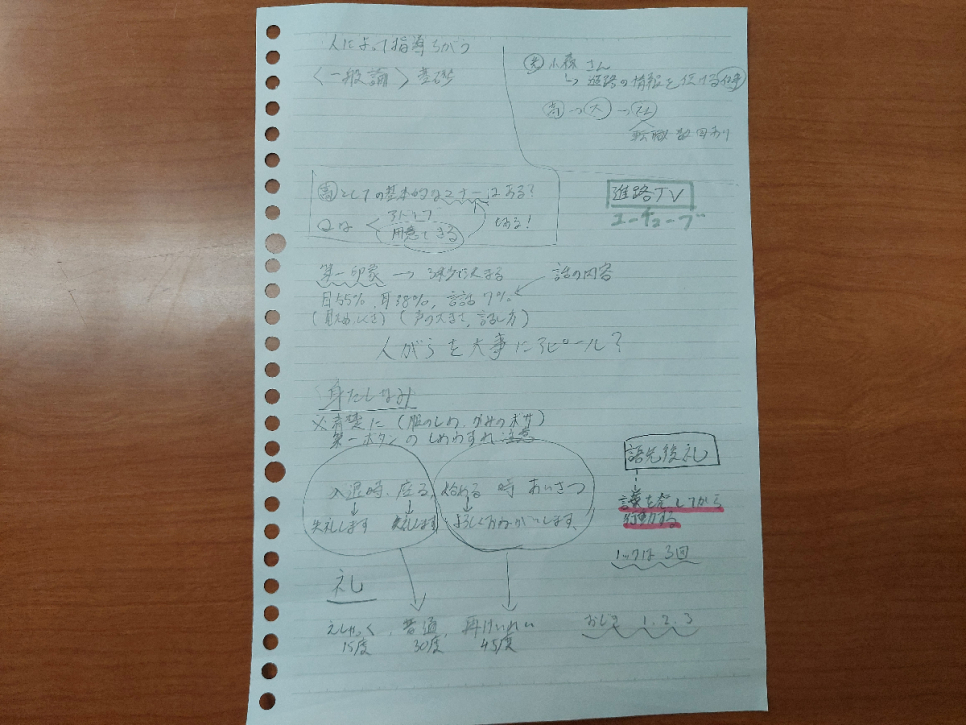 人によって指導ちがう
〈一般論〉基礎
小森さん
↳ 進路の情報を伝える仕事
高→大→社
就職 数回あり
高としての基本的なマナーはある?
用意できる
ある!
進路TV
ユーチューブ
第一印象 →
話の内容
目55%、耳38%、言語7%
(見ため、しぐさ)(声の大きさ、話し方)
人がらを大事にアピール?
身だしなみ
※清楚に(服のしわ、
第一ボタンのしめわすれ注意
語先後礼
入退時、座る、始める時 あいさつ
失礼します 失礼します よろしくお願いします。
言葉を完してから
行動する
ノックは3回
礼
えしゃく、普通、再けいれい
15度 30度 45度
おじぎ 1.2.3